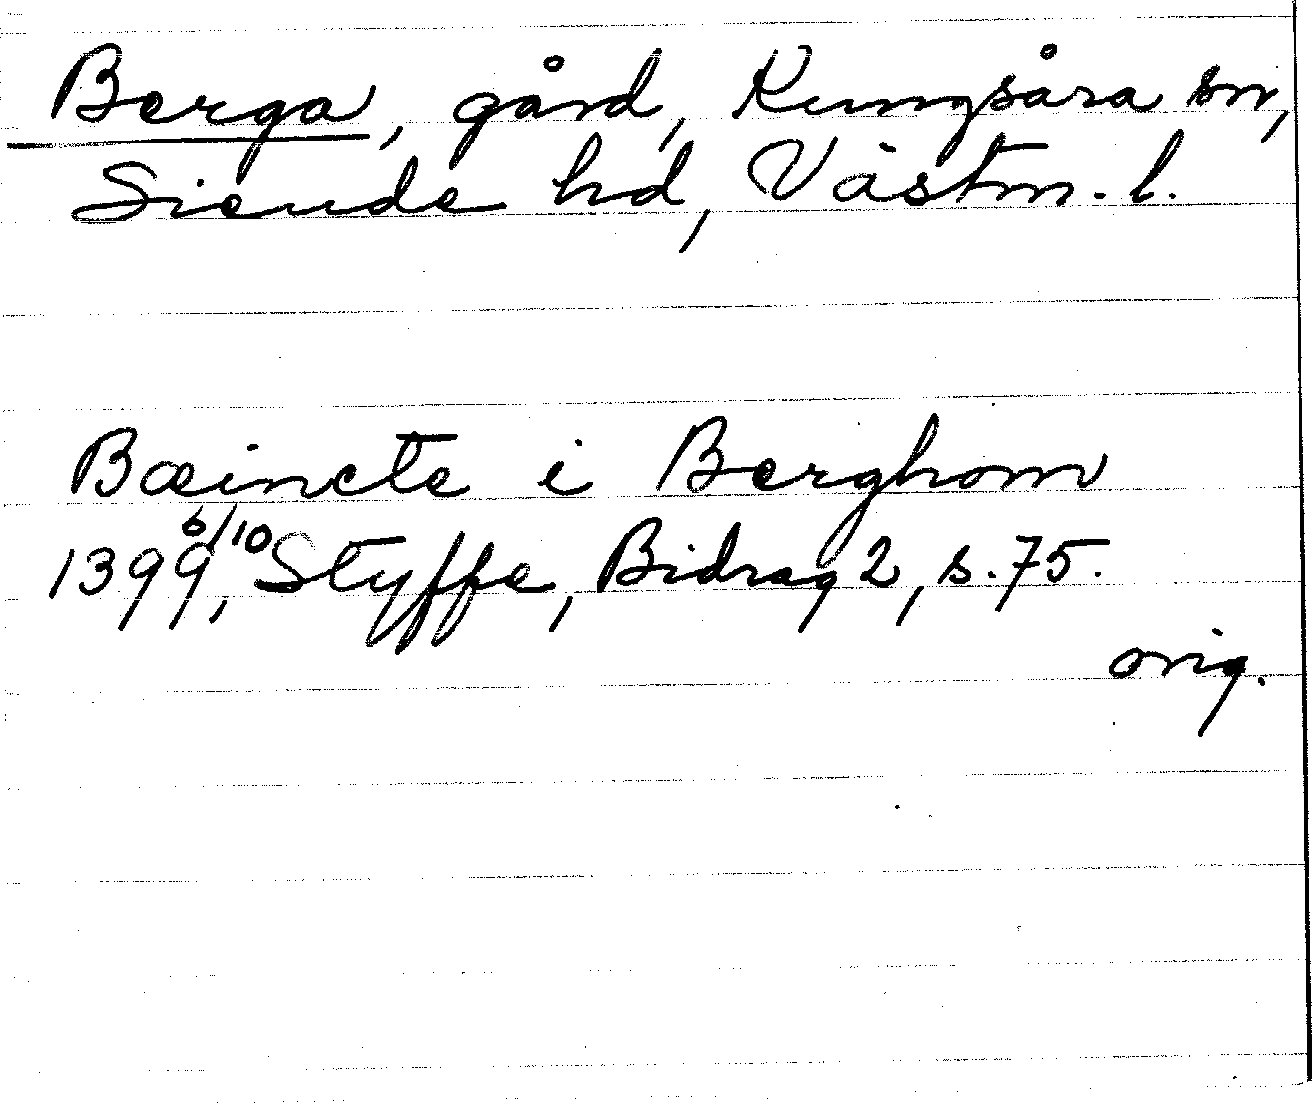 Berga, gård, Kungsåra sn,
Siende hd, Västm. l.
Bæincte i Berghom
1399 6/10, Styffe, Bidrag 2, s. 75.
orig.